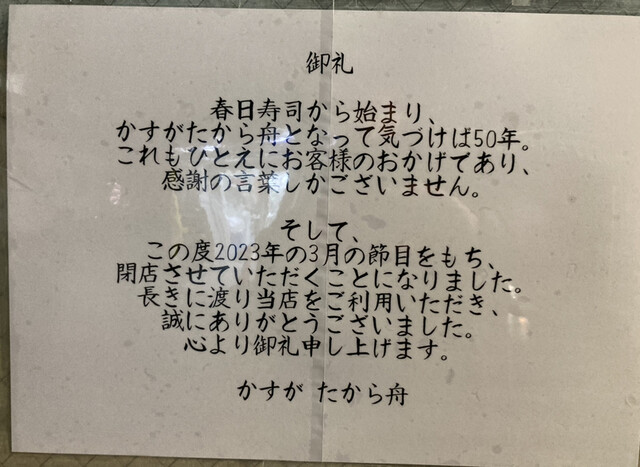 御礼
春日寿司から始まり、
かすがたから舟となって気づけば50年。
これもひとえにお客様のおかげてあり、
感謝の言葉しかございません。
そして、
この度2023年の3月の節目をもち、
閉店させていただくことになりました。
長きに渡り当店をご利用いただき、
誠にありがとうございました。
心より御礼申し上げます。
かすが たから舟